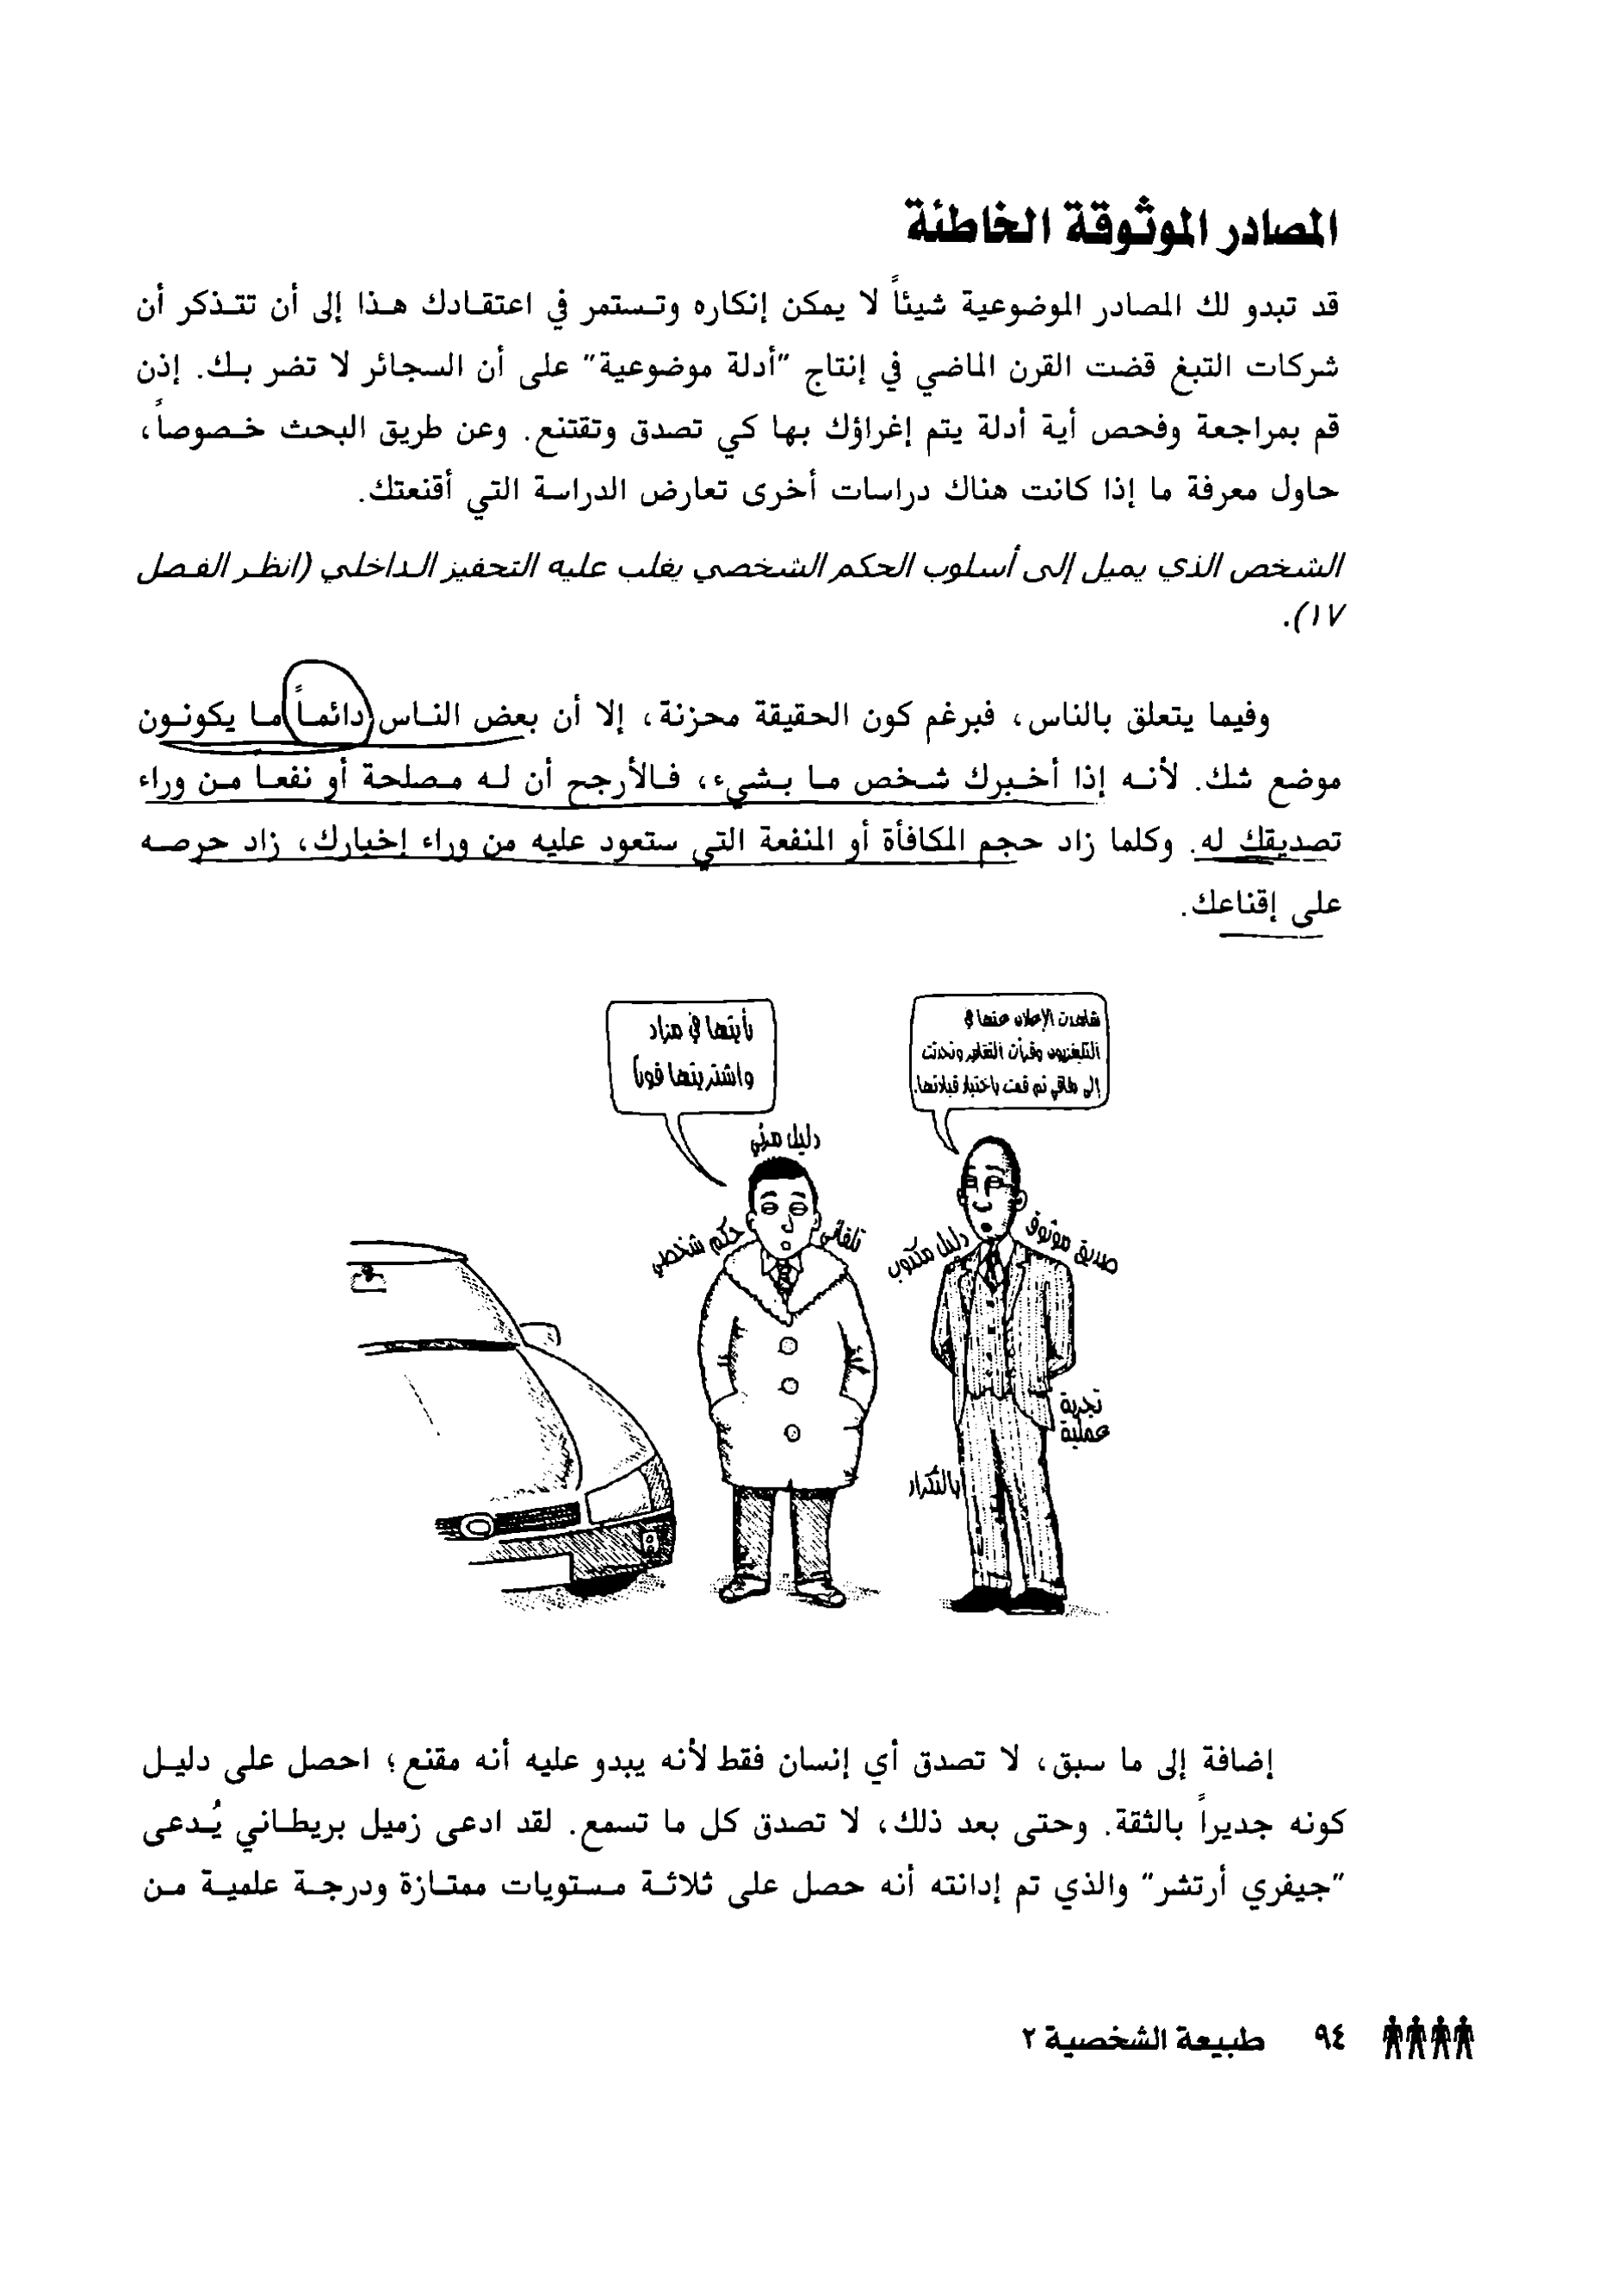 المصادر الموثوقة الخاطئة
قد تبدو لك المصادر الموضوعية شيئاً لا يمكن إنكاره وتستمر في اعتقادك هذا إلى أن تتذكر أن
شركات التبغ قضت القرن الماضي في إنتاج "أدلة موضوعية" على أن السجائر لا تضر بك. إذن
قم بمراجعة وفحص أية أدلة يتم إغراؤك بها كي تصدق وتقتنع. وعن طريق البحث خصوصاً،
حاول معرفة ما إذا كانت هناك دراسات أخرى تعارض الدراسة التي أقنعتك.
الشخص الذي يميل إلى أسلوب الحكم الشخصي يغلب عليه التحفيز الداخلي (انظر الفصل
١٧).
وفيما يتعلق بالناس، فبرغم كون الحقيقة محزنة، إلا أن بعض الناس دائماً ما يكونون
موضع شك. لأنه إذا أخبرك شخص ما بشيء، فالأرجح أن له مصلحة أو نفعا من وراء
تصديقك له. وكلما زاد حجم المكافأة أو المنفعة التي ستعود عليه من وراء إخبارك، زاد حرصه
على إقناعك.
شاهدت الإعلان عنها في
التليفزيون وقرأت التقارير وتحدثت
إلى رفاقي ثم قمت باختبار قيادتها.
رأيتها في مزاد
واشتريتها فوراً
دليل مرئي
حكم شخصي
تلقائي
دليل مكتوب
صديق موثوق
تجربة
عملية
بالتكرار
إضافة إلى ما سبق، لا تصدق أي إنسان فقط لأنه يبدو عليه أنه مقنع؛ احصل على دليل
كونه جديراً بالثقة. وحتى بعد ذلك، لا تصدق كل ما تسمع. لقد ادعى زميل بريطاني يُدعى
"جيفري أرتشر" والذي تم إدانته أنه حصل على ثلاثة مستويات ممتازة ودرجة علمية من
٩٤ طبيعة الشخصية ٢